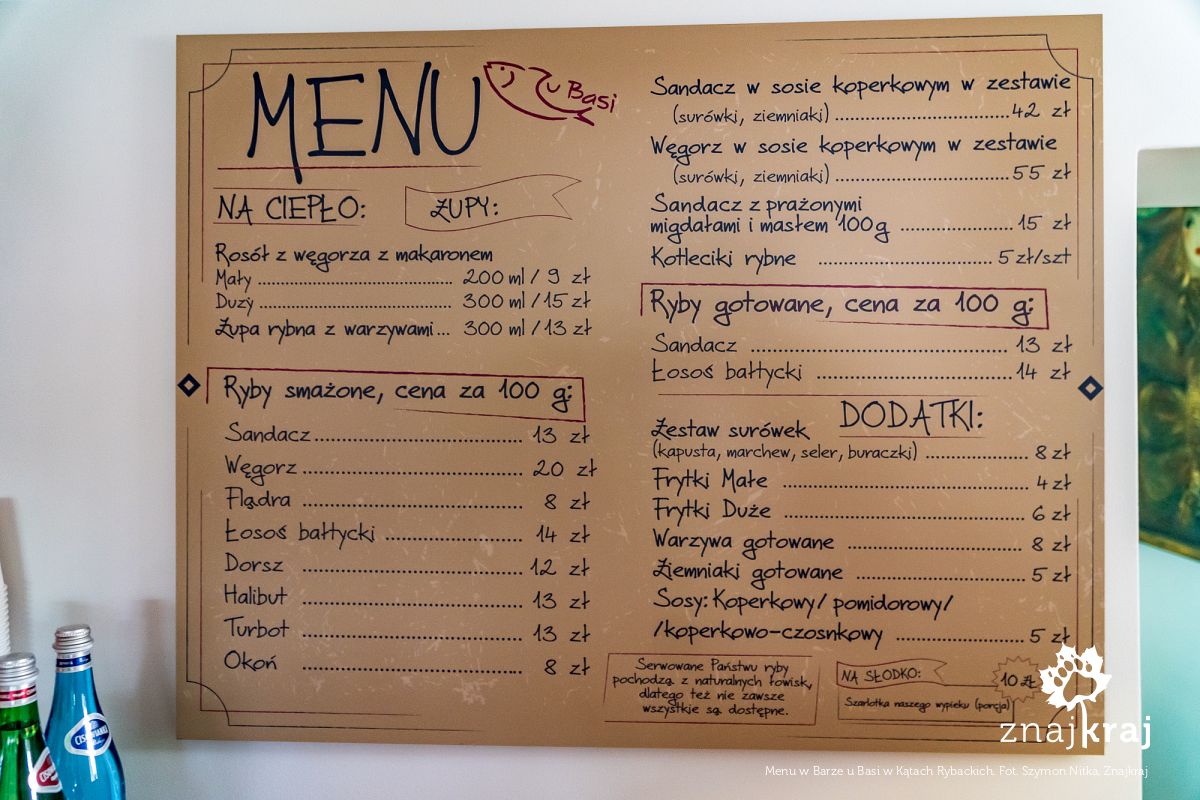 MENU
u Basi
NA CIEPŁO:
ZUPY:
Rosół z węgorza z makaronem
Mały ........ 200 ml / 9 zł
Duzy ........ 300 ml / 15 zł
Zupa rybna z warzywami ... 300 ml / 13 zł
Ryby smażone, cena za 100 g:
Sandacz ........ 13 zł
Węgorz ........ 20 zł
Flądra ........ 8 zł
Łosoś bałtycki ........ 14 zł
Dorsz ........ 12 zł
Halibut ........ 13 zł
Turbot ........ 13 zł
Okoń ........ 8 zł
Sandacz w sosie koperkowym w zestawie
(surówki, ziemniaki) ........ 42 zł
Węgorz w sosie koperkowym w zestawie
(surówki, ziemniaki) ........ 55 zł
Sandacz z prażonymi
migdałami i masłem 100g ........ 15 zł
Kotleciki rybne ........ 5 zł/szt
Ryby gotowane, cena za 100 g:
Sandacz ........ 13 zł
Łosoś bałtycki ........ 14 zł
DODATKI:
Zestaw surówek
(kapusta, marchew, seler, buraczki) ........ 8 zł
Frytki Małe ........ 4 zł
Frytki Duże ........ 6 zł
Warzywa gotowane ........ 8 zł
Ziemniaki gotowane ........ 5 zł
Sosy: Koperkowy/ pomidorowy/
/koperkowo-czosnkowy ........ 5 zł
Serwowane Państwu ryby
pochodzą z naturalnych łowisk,
dlatego też nie zawsze
wszystkie są dostępne.
NA SŁODKO:
10 ZŁ
Szarlotka naszego wypieku (porcja)
CISOWIANKA
znajkraj
Menu w Barze u Basi w Kątach Rybackich. Fot. Szymon Nitka, Znajkraj